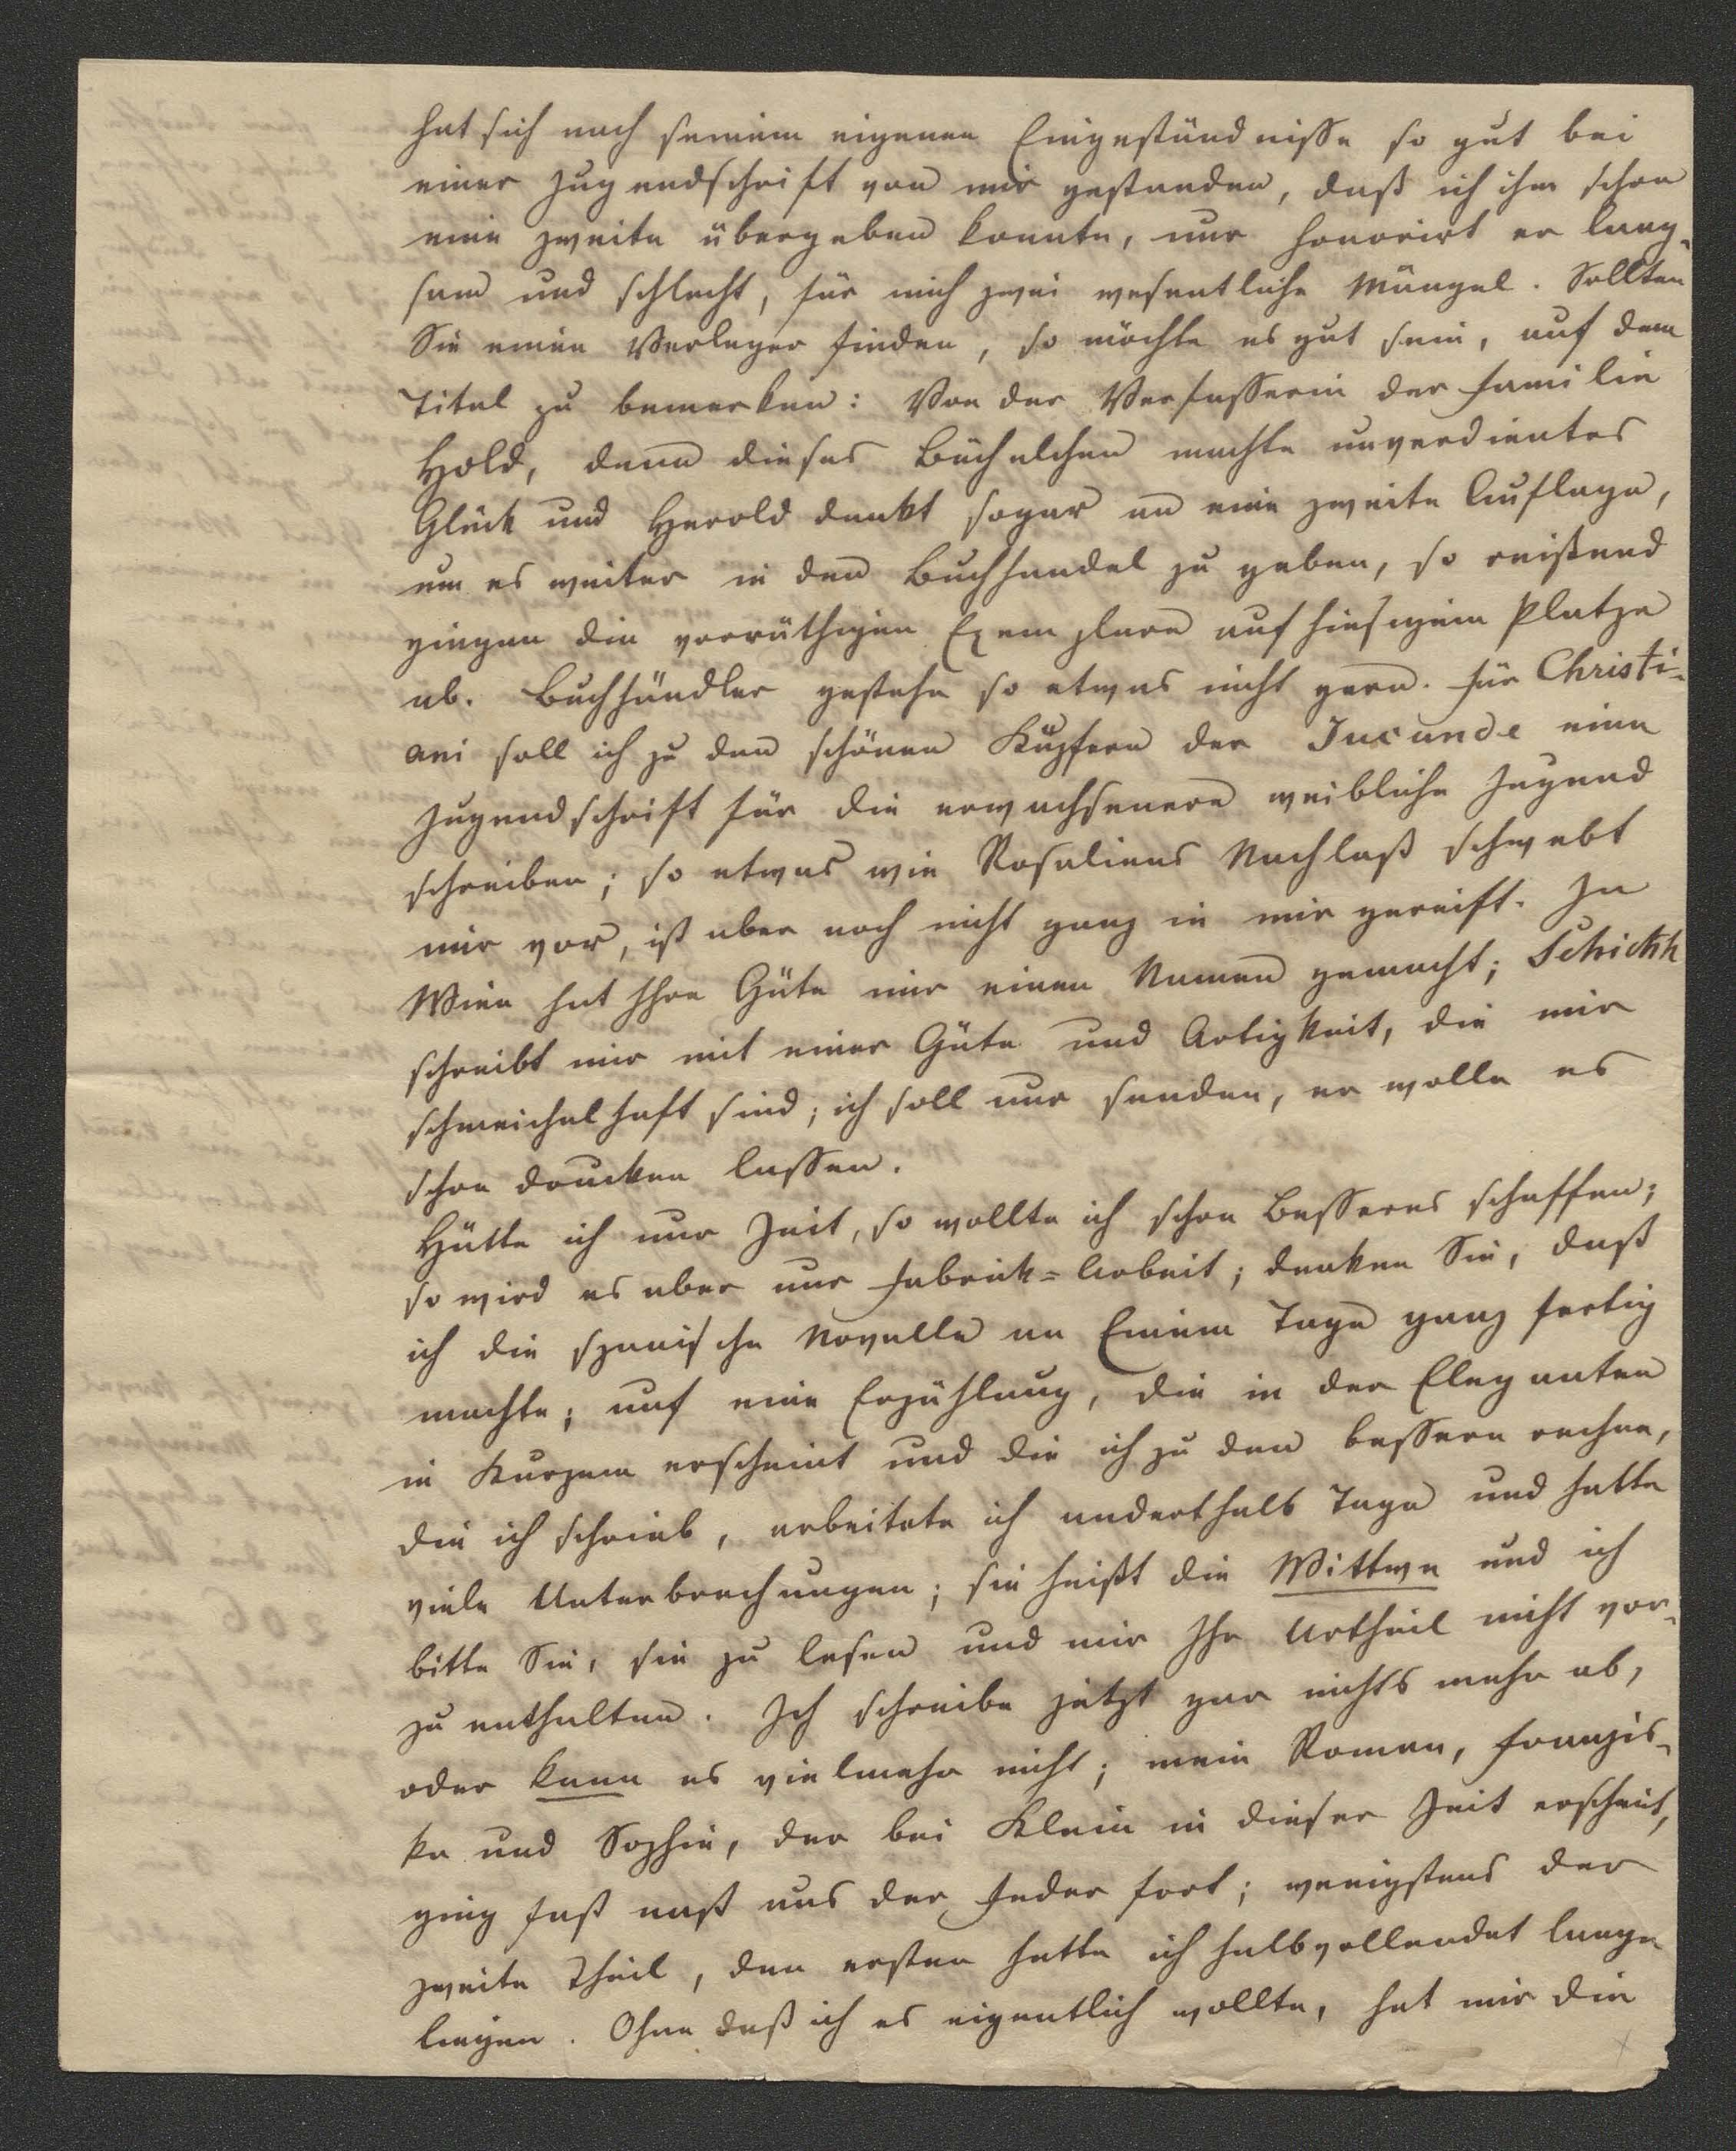 hat sich nach seinem eigenen Eingeständnisse so gut bei
einer Jugendschrift von mir gestanden, daß ich ihm schon
eine zweite übergeben konnte, nur honorirt er lang-
sam und schlecht, für mich zwei wesentliche Mängel. Sollten
Sie einen Verleger finden, so möchte es gut sein, auf dem
Titel zu bemerken: Von der Verfasserin der Familie
Hold, denn dieses Büchelchen machte unverdientes
Glück und Herold denkt sogar an eine zweite Auflage,
um es weiter in den Buchhandel zu geben, so reißend
gingen die vorräthigen Exemplare auf hiesigem Platze
ab. Buchhändler gestehn so etwas nicht gern. Für Christi-
ani soll ich zu den schönen Kupfern der Jucunde eine
Jugendschrift für die erwachsenere weibliche Jugend
schreiben; so etwas wie Rosaliens Nachlaß schwebt
mir vor, ist aber noch nicht ganz in mir gereift. In
Wien hat Ihre Güte mir einen Namen gemacht; Schickh
schreibt mir mit einer Güte und Artigkeit, die mir
schmeichelhaft sind; ich soll nur senden, er wolle es
schon drucken lassen.
Hätte ich nur Zeit, so wollte ich schon Besseres schaffen;
so wird es aber nur Fabrik=Arbeit; denken Sie, daß
ich die spanische Novelle an Einem Tage ganz fertig
machte; auf eine Erzählung, die in der Eleganten
in Kurzem erscheint und die ich zu den bessern rechne,
die ich schrieb, arbeitete ich anderthalb Tage und hatte
viele Unterbrechungen; sie heißt die Wittwe und ich
bitte Sie, sie zu lesen und mir Ihr Urtheil nicht vor-
zu enthalten. Ich schreibe jetzt gar nichts mehr ab,
oder kann es vielmehr nicht; mein Roman, Franzis-
ka und Sophie, der bei Klein in dieser Zeit erscheint,
ging fast naß aus der Feder fort; wenigstens der
zweite Theil, den ersten hatte ich halbvollendet lange
liegen. Ohne daß ich es eigentlich wollte, hat mir die